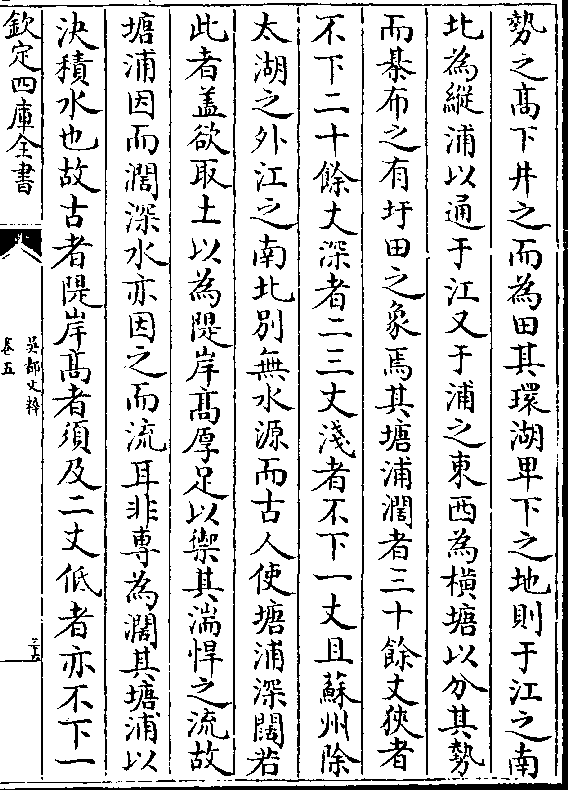 勢之髙下井之而為田其環湖卑下之地則于江之南
北為縱浦以通于江又于浦之東西為橫塘以分其勢
而棊布之有圩田之象焉其塘浦濶者三十餘丈狹者
不下二十餘丈深者二三丈淺者不下一丈且蘇州除
太湖之外江之南北别無水源而古人使塘浦深闊若
此者盖欲取土以為隄岸髙厚足以禦其湍悍之流故
塘浦因而濶深水亦因之而流耳非専為濶其塘浦以
決積水也故古者隄岸髙者須及二丈低者亦不下一
欽定四庫全書
吳都文粹
卷五